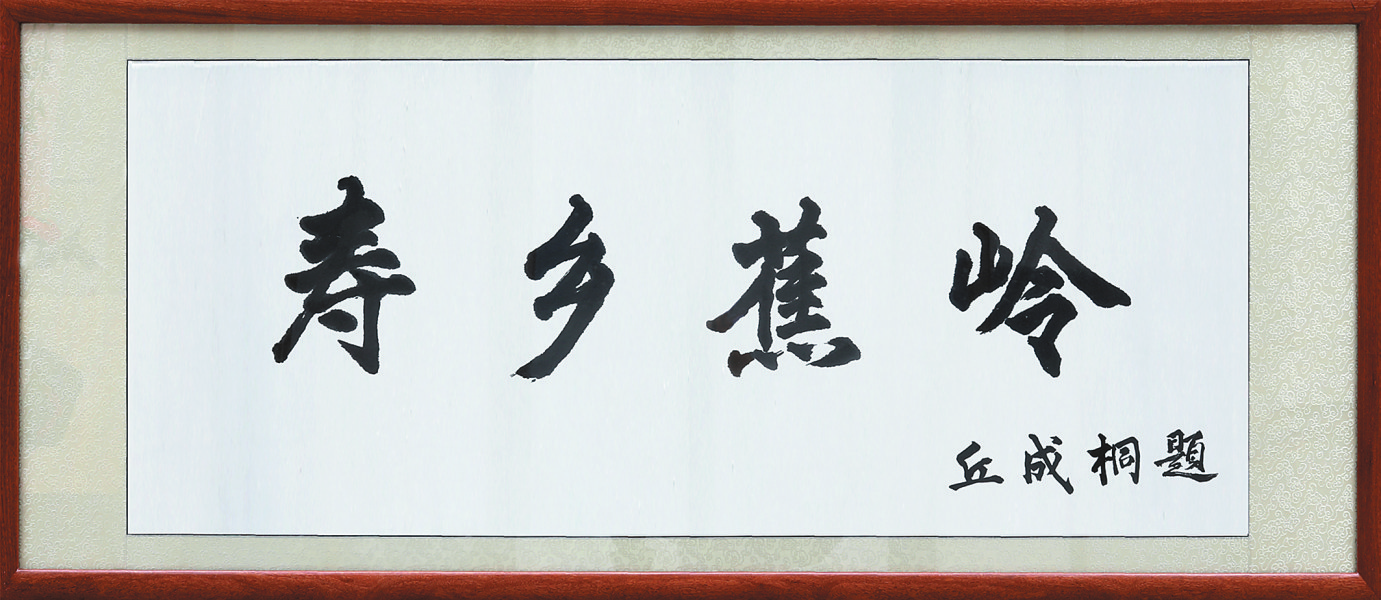 寿乡蕉岭
丘成桐题